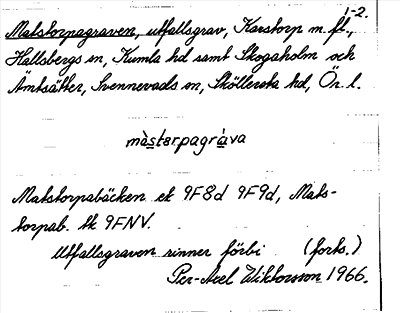 1-2.
Matstorpagraven, utfallsgrav, Karstorp m. fl.,
Hallsbergs sn, Kumla hd samt Skogaholm och
Ämtsätter, Svennevads sn, Sköllersta hd, Ör. l.
màsterpagràva
Matstorpabäcken ek 9F8d 9F9d, Mats-
torpab. tk 9FNV.
Utfallsgraven rinner förbi (forts.)
Per-Axel Wiktorsson 1966.